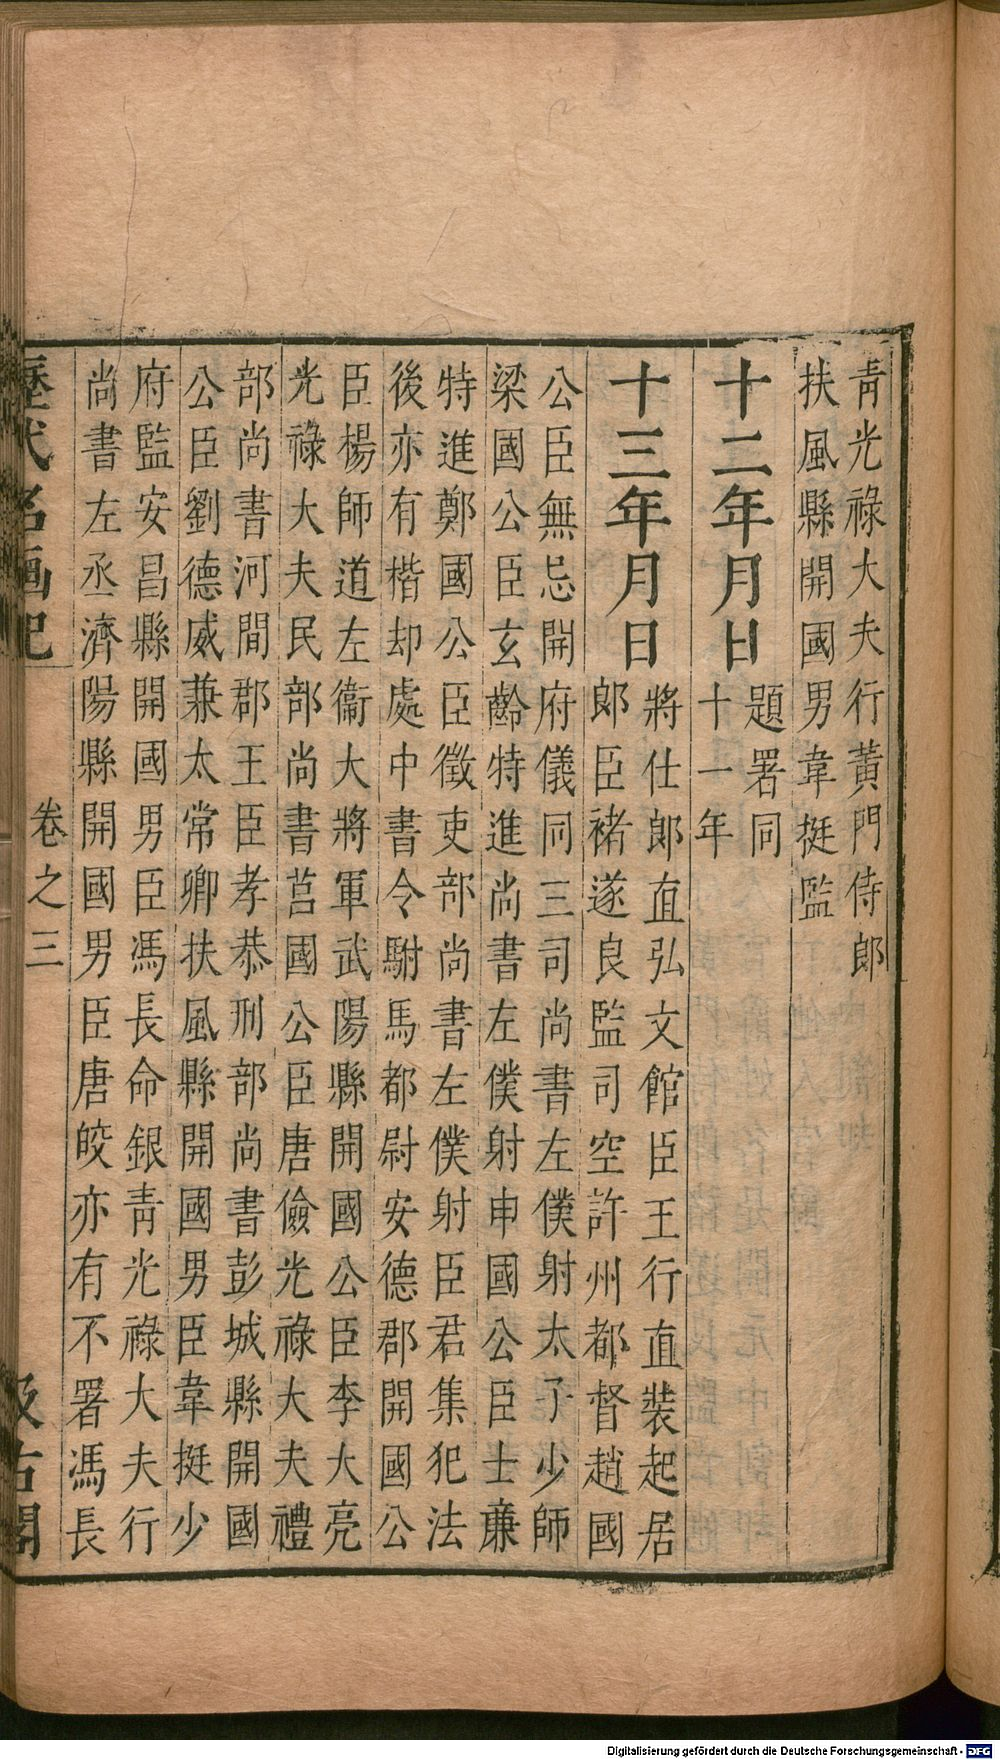 青光祿大夫行黃門侍郎
扶風縣開國男韋挺監
十二年月日
題署同
十一年
十三年月日
將仕郎直弘文館臣王行直裝起居
郎臣褚遂良監司空許州都督趙國
公臣無忌開府儀同三司尚書左僕射太子少師
梁國公臣玄齡特進尚書左僕射申國公臣士廉
特進鄭國公臣徵吏部尚書左僕射臣君集犯法
後亦有楷却處中書令駙馬都尉安德郡開國公
臣楊師道左衞大將軍武陽縣開國公臣李大亮
光祿大夫民部尚書莒國公臣唐儉光祿大夫禮
部尚書河間郡王臣孝恭刑部尚書彭城縣開國
公臣劉德威兼太常卿扶風縣開國男臣韋挺少
府監安昌縣開國男臣馮長命銀青光祿大夫行
尚書左丞濟陽縣開國男臣唐皎亦有不署馮長
歷代名画記 卷之三 汲古閣
Digitalisierung gefördert durch die Deutsche Forschungsgemeinschaft - DFG